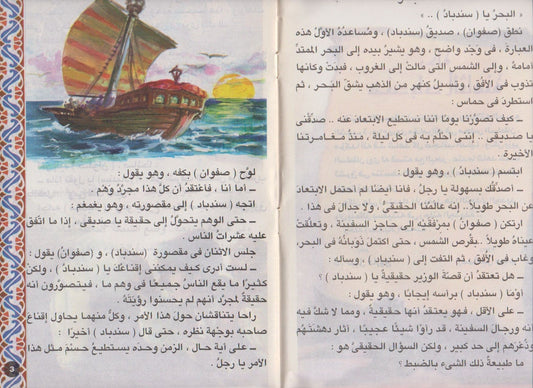 « البحرُ يا ( سندباد ) .. »
نطق ( صفوان ) ، صديقُ ( سندباد ) ، ومُساعدُهُ الأوَّلُ هذه
العبارةَ ، فى وَجْدٍ واضحٍ ، وهو يشيرُ بيدِه إلى البحرِ الممتدِّ
أمامَهُ ، وإلى الشمسِ التى مالتْ إلى الغروبِ ، فبدتْ وكأنها
تذوبُ فى الأُفُقِ ، وتسيلُ كنهرٍ من الذهبِ يشقُّ البحرَ ، ثم
استطردَ فى حماسٍ :
ــ كيف تصوَّرْنا يومًا أننا نستطيعُ الابتعادَ عنه .. صدِّقْنى
يا صديقى .. إننى أحلُمُ به فى كلِّ ليلةٍ ، منذُ مُغامرتِنا
الأخيرةِ ..
ابتسم ( سندباد ) ، وهو يقولُ :
ــ أصدِّقُكَ بسهولةٍ يا رجلُ ، فأنا أيضًا لم أحتملِ الابتعادَ
عن البحرِ طويلاً .. إنه عالمُنا الحقيقىُّ ، ولا جدالَ فى هذا .
ارتكن ( صفوان ) بمِرْفقَيْهِ إلى حاجزِ السفينةِ ، وتعلَّقتْ
عيناهُ طويلاً .. بقُرصِ الشمسِ ، حتى اكتملَ ذوبانُهُ فى البحرِ ،
وغاب فى الأفقِ ، ثم التفت إلى ( سندباد ) ، وسأله :
ــ هل تعتقدُ أن قصةَ الوزيرِ حقيقيةٌ يا ( سندباد ) ؟
أوْمَأَ ( سندباد ) برأسِه إيجابًا ، وهو يقولُ :
ــ على الأقلِّ ، فهو يعتقدُ أنها حقيقيةٌ ، ومما لا شكَّ فيه
أنه ورجالَ السفينةِ ، قد رأوْا شيئًا عجيبًا ، أثار دهشتَهُمْ
وذُعْرَهم إلى حدٍّ كبيرٍ ، ولكن السؤالَ الحقيقىَّ هو :
ما طبيعةُ ذلك الشىءِ بالضبطِ ؟
لوَّح ( صفوان ) بكفِّه ، وهو يقولُ :
ــ أما أنا ، فأعتقدُ أن كلَّ هذا مجردُ وهمٍ .
اتجه ( سندباد ) إلى مقصورتِه ، وهو يغمغمُ :
ــ حتى الوهمُ يتحوَّلُ إلى حقيقةٍ يا صديقى ، إذا ما اتفق
عليه عشراتُ الناسِ .
جلس الاثنانِ فى مقصورةِ ( سندباد ) ، و ( صفوان ) يقولُ :
ــ لست أدرى كيف يمكننى إقناعُكَ يا ( سندباد ) ، ولكن
كثيرًا ما يقعُ الناسُ جميعًا فى وهمٍ ما ، فيتصورُون أنه
حقيقةٌ لمجردِ أنهم لم يحسنُوا رؤيتَهُ .
راحا يتناقشانِ حولَ هذا الأمرِ ، وكلٌّ منهما يحاولُ إقناعَ
صاحبِه بوجهةِ نظرِه ، حتى قال ( سندباد ) أخيرًا :
ــ على أيةِ حالٍ ، الزمنُ وحدَه يستطيعُ حسْمَ مثلِ هذا
الأمرِ يا رجلُ .
3